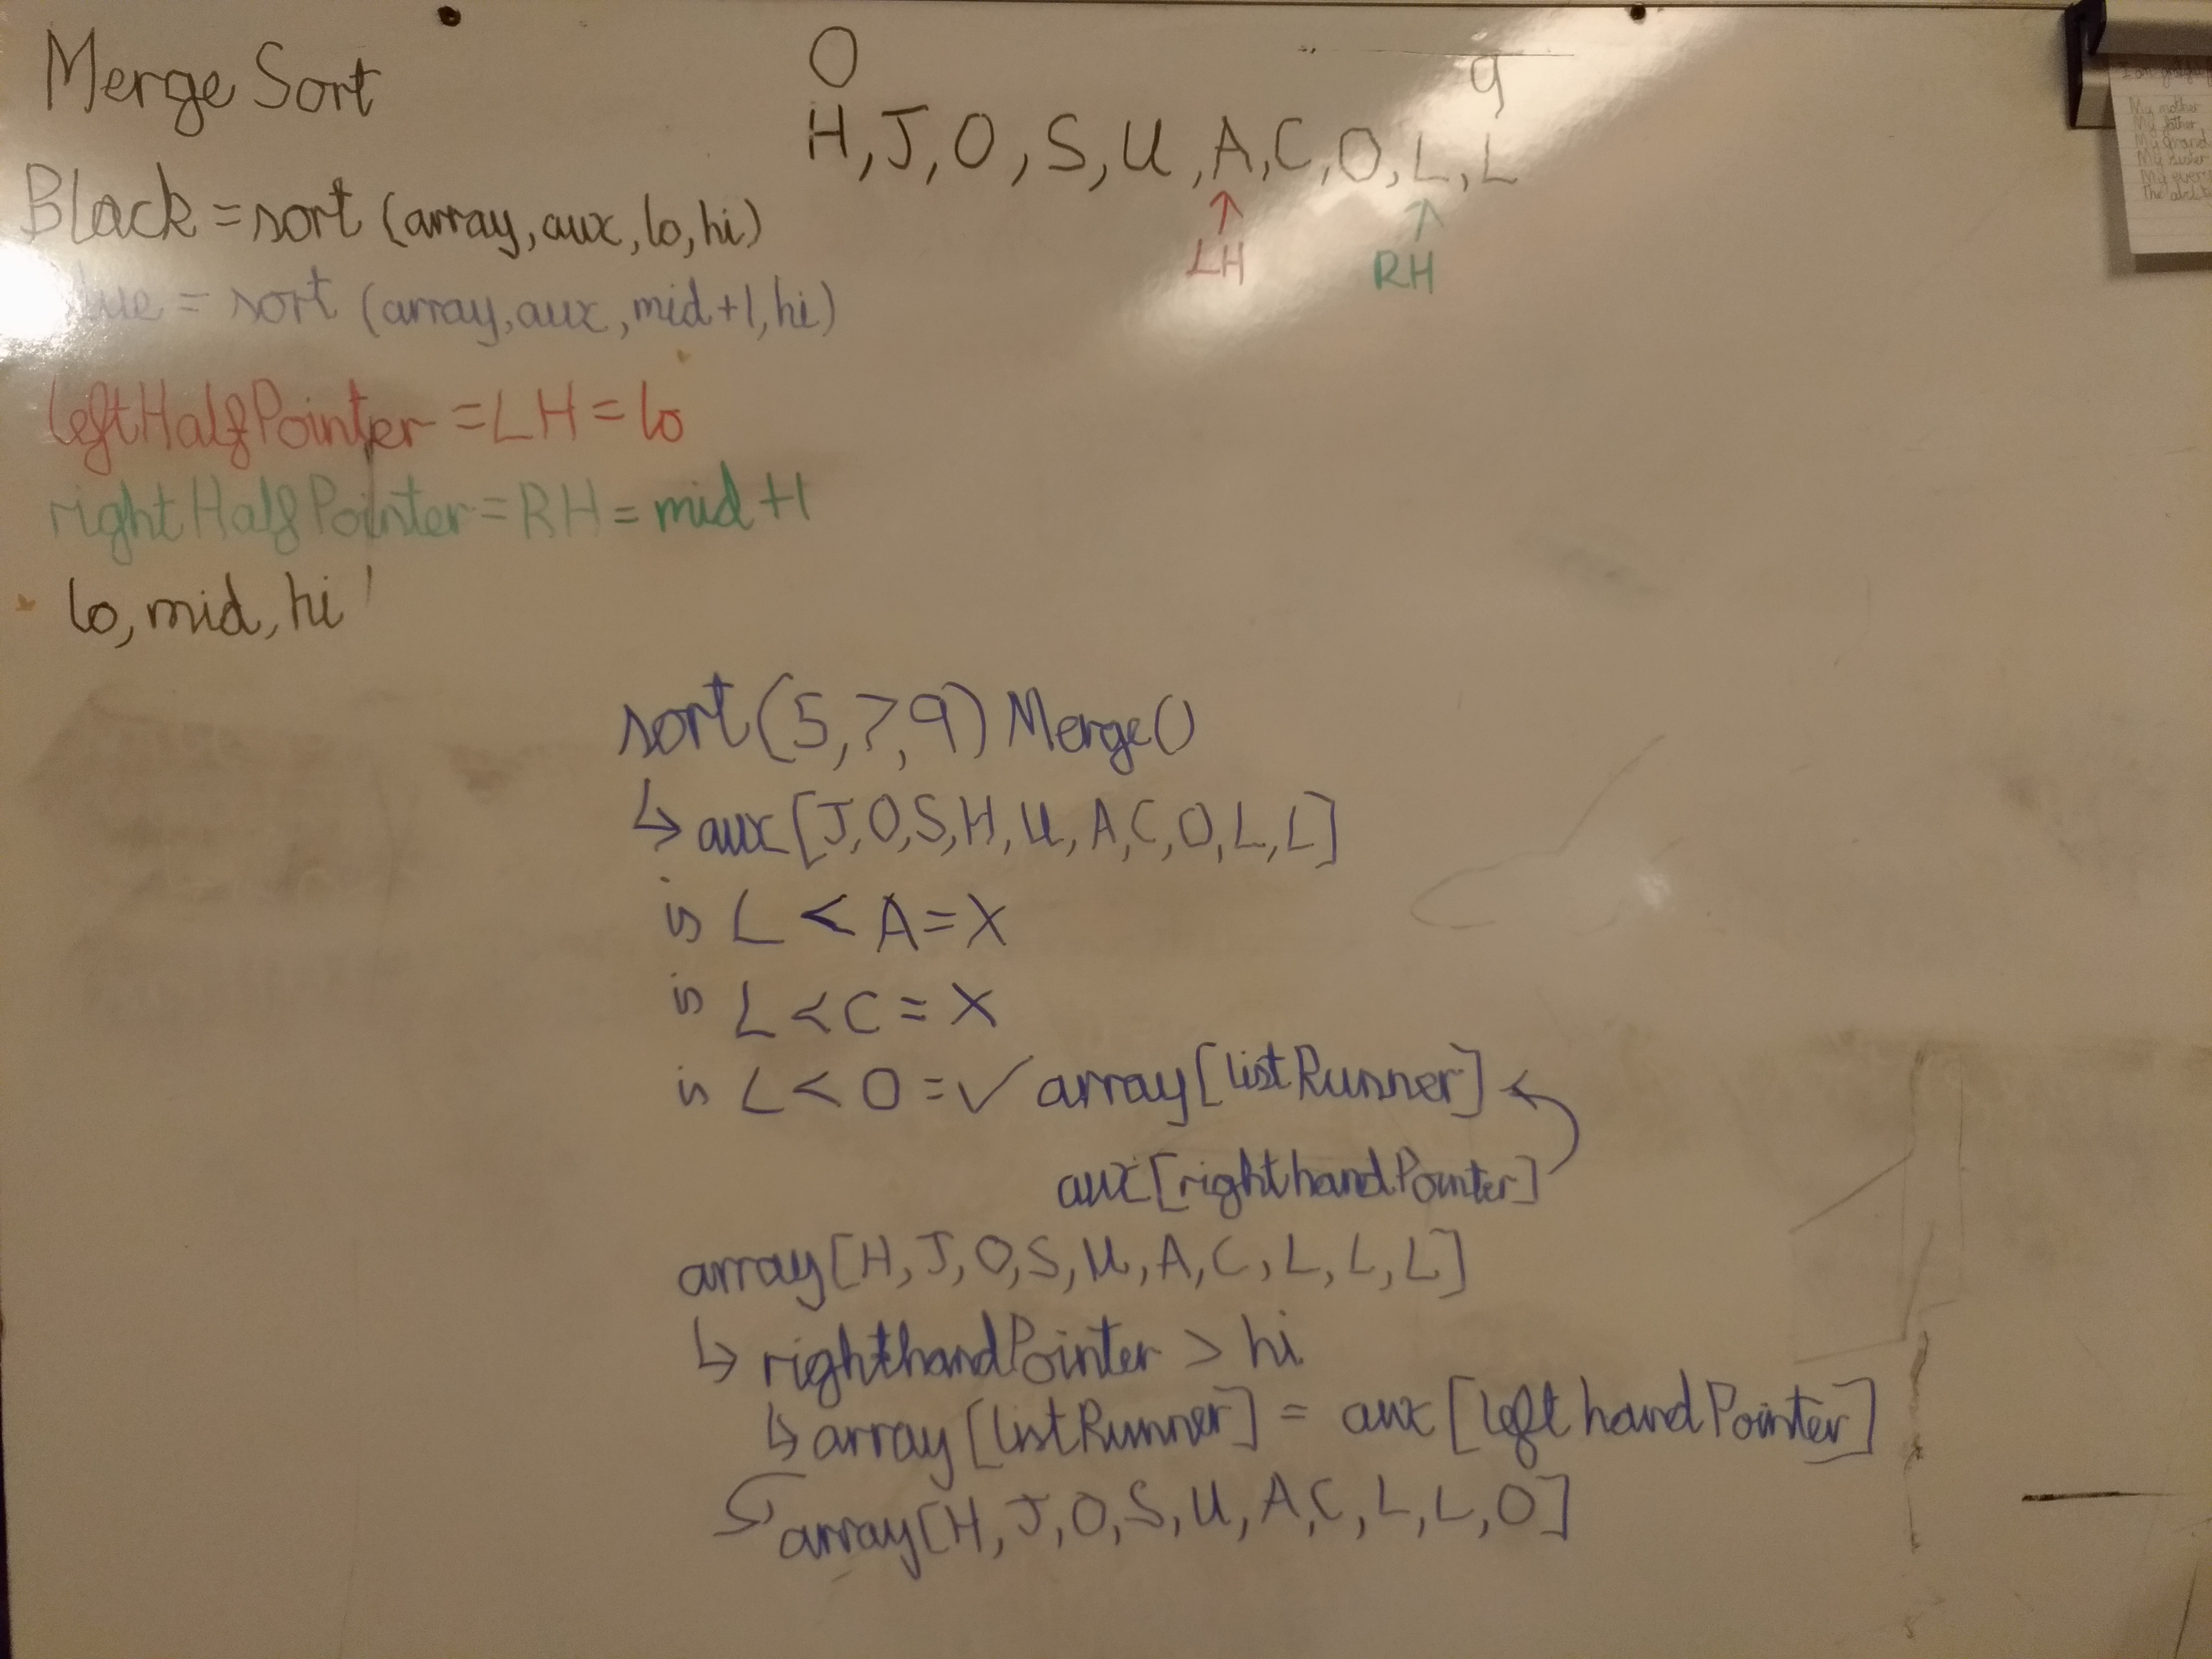 Merge Sort
0 9
H,J,O,S,U,A,C,O,L,L
↑ ↑
LH RH
Black = sort (array, aux, lo, hi)
= sort (array, aux, mid+1, hi)
leftHalfPointer = LH = lo
rightHalfPointer = RH = mid+1
lo, mid, hi
sort(5,7,9) Merge()
↳ aux[J,O,S,H,U,A,C,O,L,L]
is L < A = X
is L < C = X
is L < O = ✓ array[listRunner]
aux[righthandPointer]
array[H,J,O,S,U,A,C,L,L,L]
↳ righthandPointer > hi
↳ array[listRunner] = aux[lefthandPointer]
array[H,J,O,S,U,A,C,L,L,O]
My mother
My father